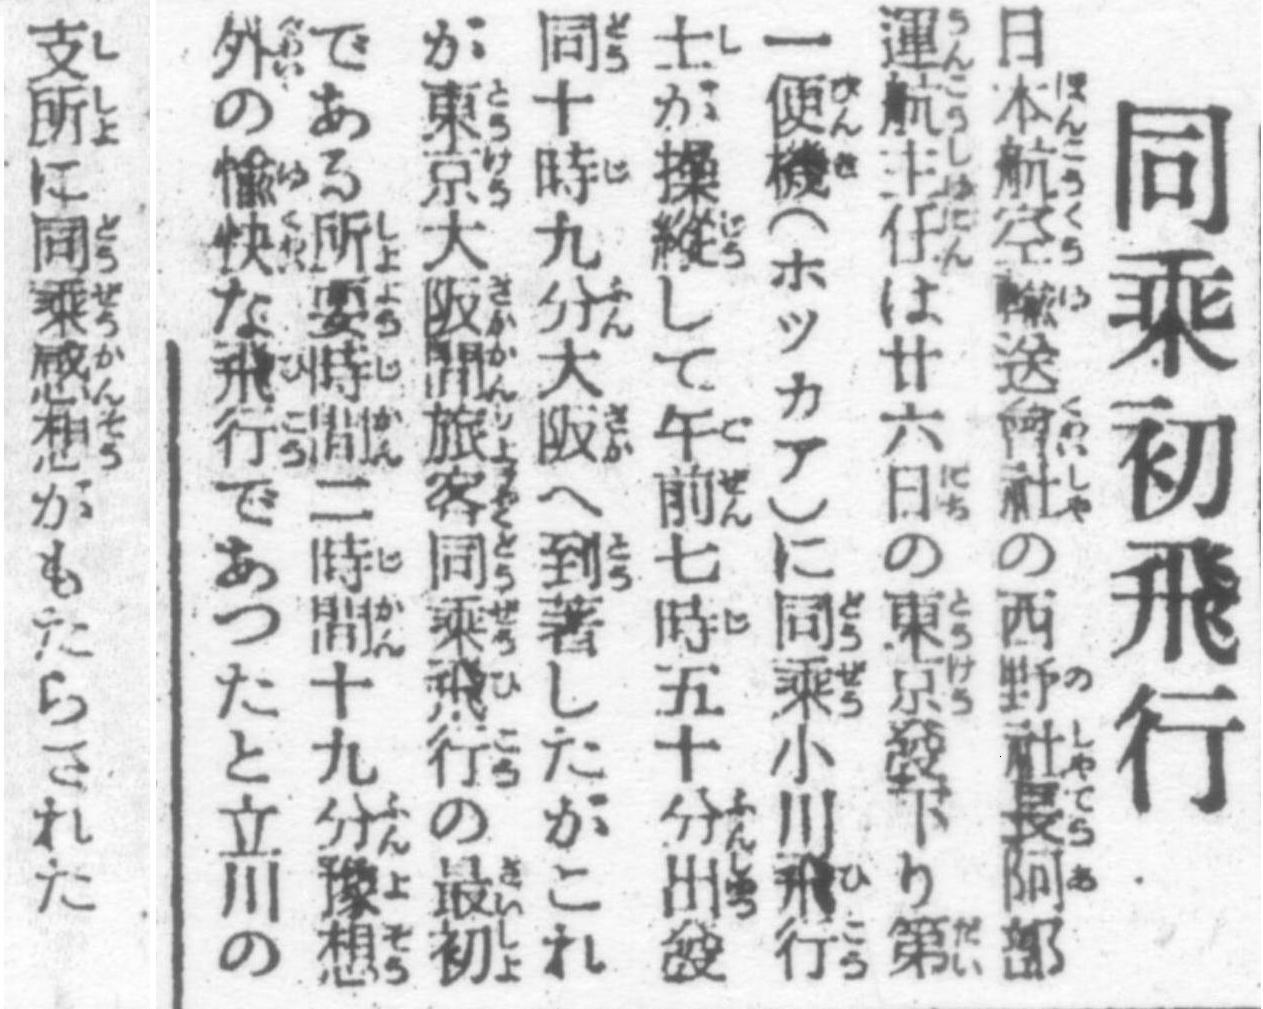 同乘初飛行
日本航空輸送會社の西野社長阿部
運航主任は廿六日の東京發下り第
一便機(ホッカア)に同乘小川飛行
士が操縱して午前七時五十分出發
同十時九分大阪へ到著したがこれ
が東京大阪間旅客同乘飛行の最初
である所要時間二時間十九分豫想
外の愉快な飛行であつたと立川の
支所に同乘感想がもたらされた